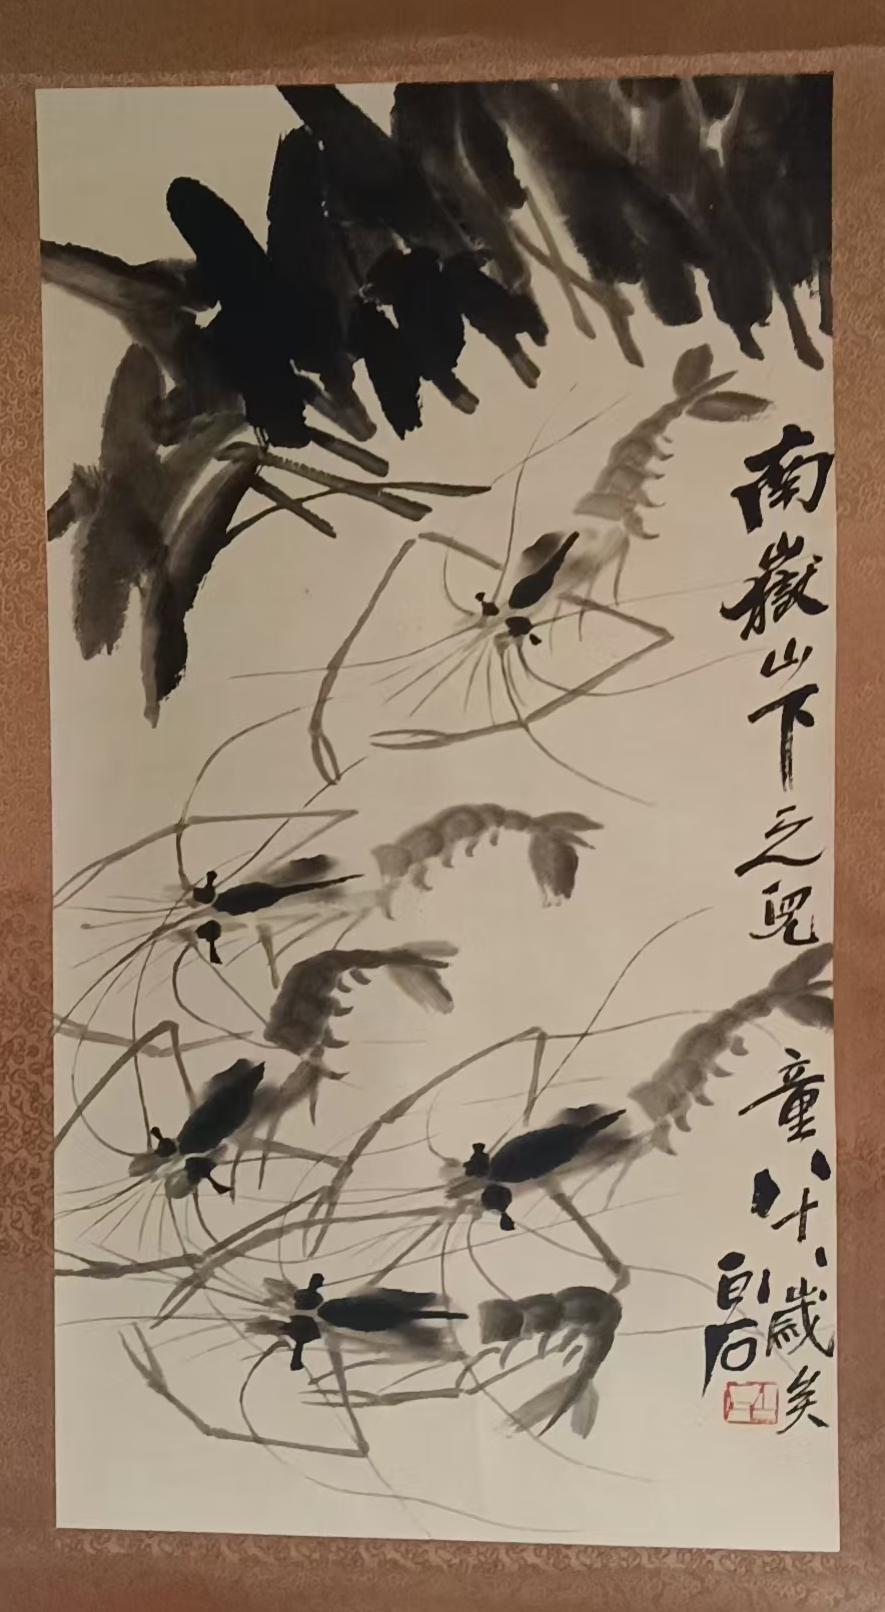 南嶽山下之兒童八十八歲矣
白石